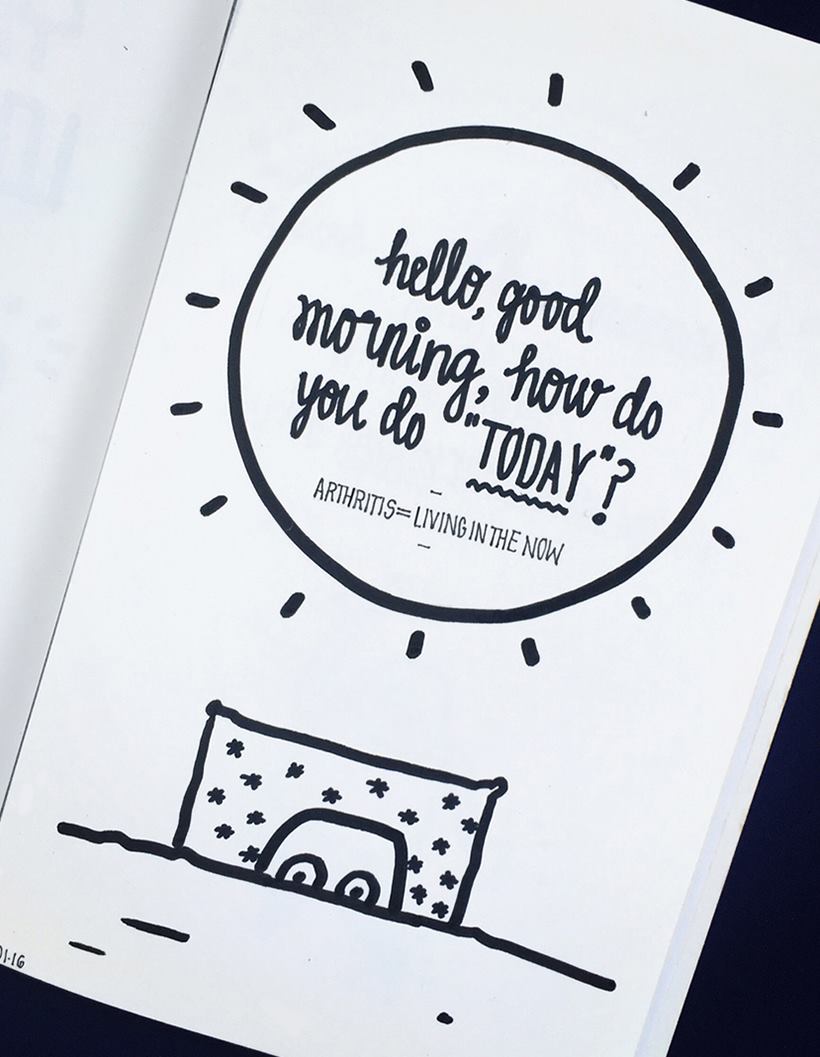 hello, good
morning, how do
you do "TODAY"?
ARTHRITIS = LIVING IN THE NOW